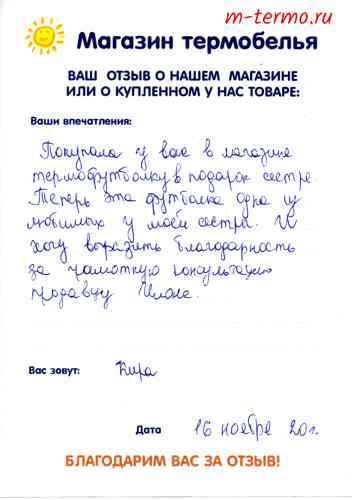 m-termo.ru
Магазин термобелья
ВАШ ОТЗЫВ О НАШЕМ МАГАЗИНЕ
ИЛИ О КУПЛЕННОМ У НАС ТОВАРЕ:
Ваши впечатления:
Покупала у вас в магазине
термофутболку в подарок сестре.
Теперь эта футболка одна из
любимых у моей сестры. И
хочу выразить благодарность
за грамотную консультацию
продавцу
Вас зовут: Кира
Дата 16 ноября 20г.
БЛАГОДАРИМ ВАС ЗА ОТЗЫВ!